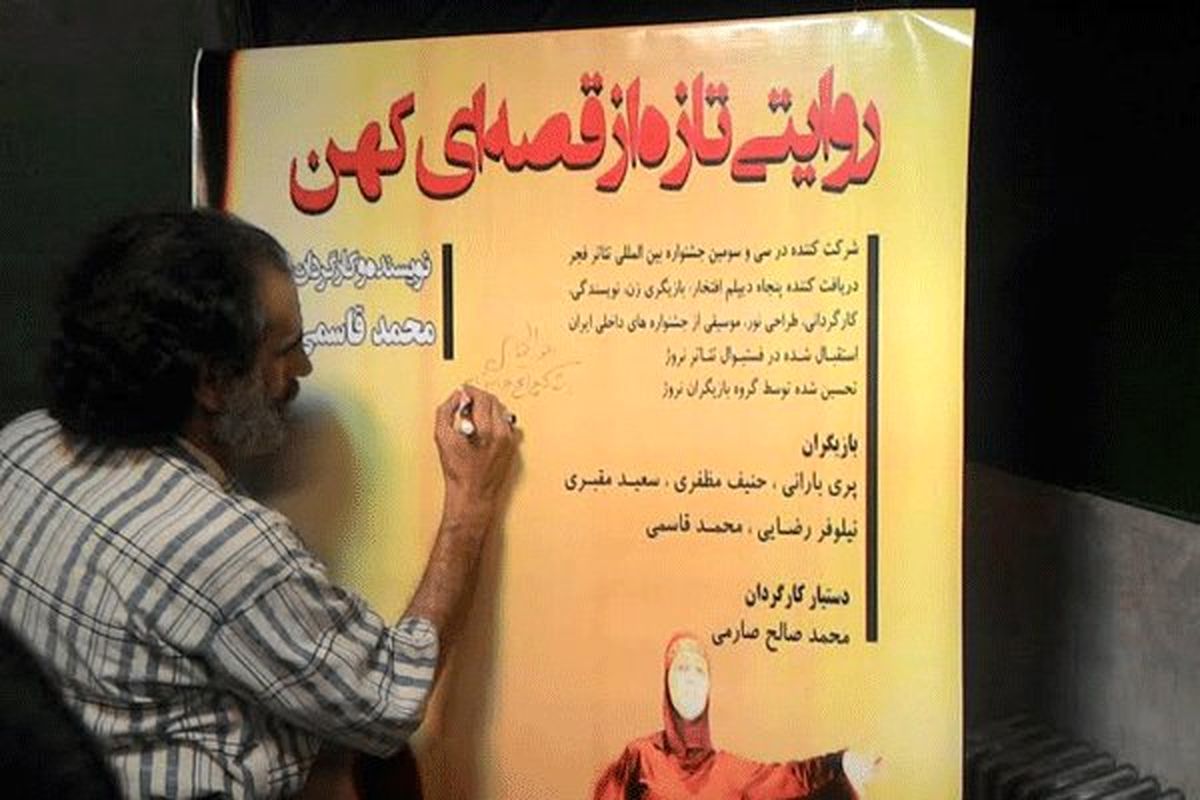 روایتی تازه از قصه‌ای کهن
شرکت کننده در سی و سومین جشنواره بین المللی تئاتر فجر
دریافت کننده پنجاه دیپلم افتخار، بازیگری زن، نویسندگی،
کارگردانی، طراحی نور، موسیقی از جشنواره های داخلی ایران
استقبال شده در فستیوال تئاتر نروژ
تحسین شده توسط گروه بازیگران نروژ
بازیگران
پری بارانی ، حنیف مظفری ، سعید مقبری
نیلوفر رضایی ، محمد قاسمی
دستیار کارگردان
محمد صالح صارمی
نویسنده و کارگردان
محمد قاسمی